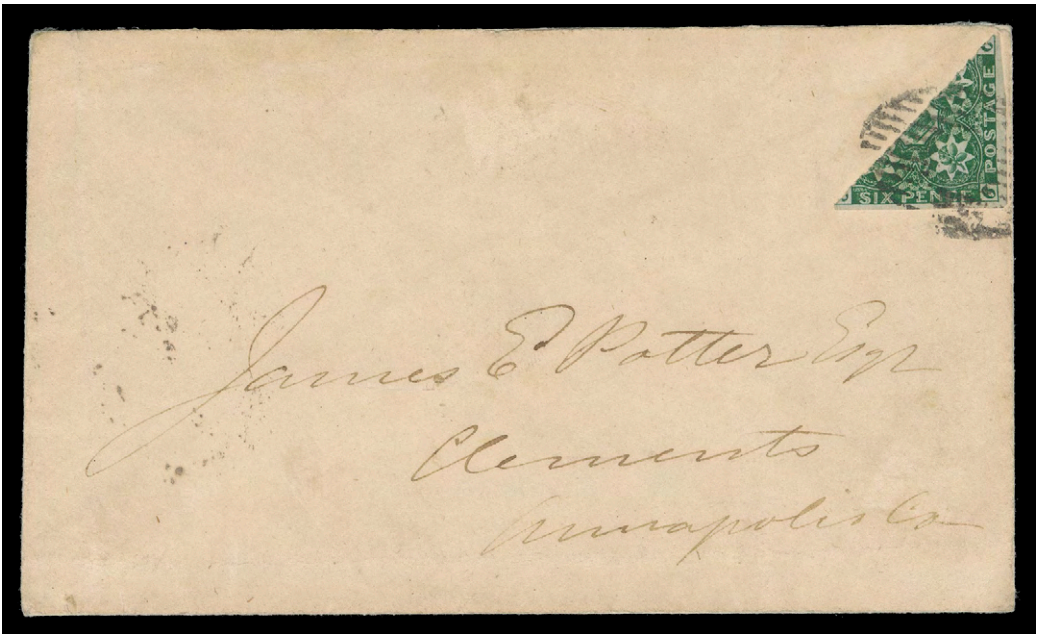 6
POSTAGE
6 SIX PENCE 6
James E. Potter Esqr
Clements
Annapolis Co